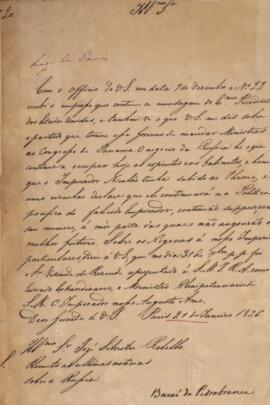 Illmo Snr
Com o Officio de V.S. em data 9 de Dezembro e No 22
recebi o impresso que contem a mensagem do Exmo Presidente
dos Estados Unidos, e tambem vi o que V.S. me diz sobre
o partido que tomou esse governo de mandar Ministros
ao Congresso de Panamá. O negocio da Russia he o que
continua a occupar hoje os espiritos e os Gabinetes, e bem
que o Imperador Nicoláo tenha subido ao Throno, e
uma circular declare que elle continuará na Politica
pacifica do fallecido Imperador, continuão supposições
sem numero, a mór parte das quaes não angourão o
melhor futuro. Sobre os Negocios do nosso Imperio
particulares direi a V.S. que no dia 30 de p.p. foi
o Sr Visconde de Rezende apresentado a S.M.I.R.A. como
Enviado Extraordinario, e Ministro Plenipotenciario de
S.M. O Imperador nosso Augusto Amo.
Deos Guarde a V.S. Paris 21 de Janeiro 1826.
Illmo Sr José Silvestre Rebello
Remetto as ultimas noticias
sobre a Russia
Barão da Pedra branca